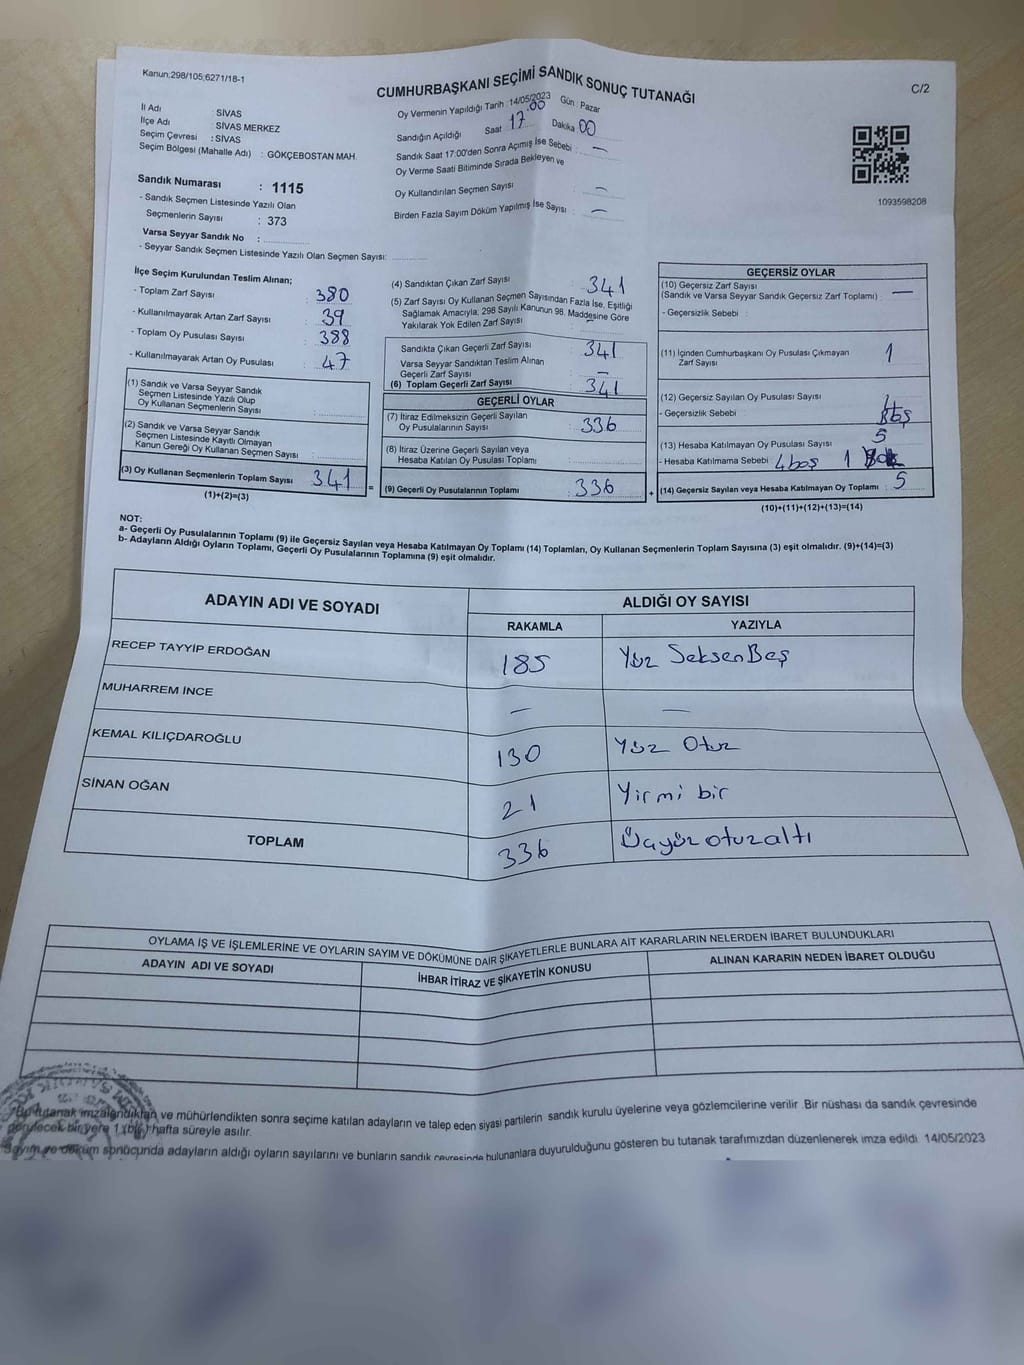 Kanun:298/105,6271/18-1
CUMHURBAŞKANI SEÇİMİ SANDIK SONUÇ TUTANAĞI
C/2
İl Adı : SİVAS
İlçe Adı : SİVAS MERKEZ
Seçim Çevresi : SİVAS
Seçim Bölgesi (Mahalle Adı) : GÖKÇEBOSTAN MAH.
Oy Vermenin Yapıldığı Tarih : 14/05/2023 Gün : Pazar
17.00
Sandığın Açıldığı Saat 17 Dakika 00
Sandık Saat 17:00'den Sonra Açımış İse Sebebi : —
Oy Verme Saati Bitiminde Sırada Bekleyen ve
Oy Kullandırılan Seçmen Sayısı : —
Birden Fazla Sayım Döküm Yapılmış İse Sayısı : —
1093598208
Sandık Numarası : 1115
- Sandık Seçmen Listesinde Yazılı Olan
Seçmenlerin Sayısı : 373
Varsa Seyyar Sandık No :
- Seyyar Sandık Seçmen Listesinde Yazılı Olan Seçmen Sayısı:
İlçe Seçim Kurulundan Teslim Alınan;
- Toplam Zarf Sayısı : 380
- Kullanılmayarak Artan Zarf Sayısı : 39
- Toplam Oy Pusulası Sayısı : 388
- Kullanılmayarak Artan Oy Pusulası : 47
(1) Sandık ve Varsa Seyyar Sandık
Seçmen Listesinde Yazılı Olup
Oy Kullanan Seçmenlerin Sayısı :
(2) Sandık ve Varsa Seyyar Sandık
Seçmen Listesinde Kayıtlı Olmayan
Kanun Gereği Oy Kullanan Seçmen Sayısı :
(3) Oy Kullanan Seçmenlerin Toplam Sayısı : 341
(1)+(2)=(3)
(4) Sandıktan Çıkan Zarf Sayısı : 341
(5) Zarf Sayısı Oy Kullanan Seçmen Sayısından Fazla İse, Eşitliği
Sağlamak Amacıyla; 298 Sayılı Kanunun 98. Maddesine Göre
Yakılarak Yok Edilen Zarf Sayısı :
Sandıkta Çıkan Geçerli Zarf Sayısı : 341
Varsa Seyyar Sandıktan Teslim Alınan
Geçerli Zarf Sayısı : —
(6) Toplam Geçerli Zarf Sayısı : 341
GEÇERLİ OYLAR
(7) İtiraz Edilmeksizin Geçerli Sayılan
Oy Pusulalarının Sayısı : 336
(8) İtiraz Üzerine Geçerli Sayılan veya
Hesaba Katılan Oy Pusulası Toplamı :
= (9) Geçerli Oy Pusulalarının Toplamı : 336
GEÇERSİZ OYLAR
(10) Geçersiz Zarf Sayısı
(Sandık ve Varsa Seyyar Sandık Geçersiz Zarf Toplamı) : —
- Geçersizlik Sebebi :
(11) İçinden Cumhurbaşkanı Oy Pusulası Çıkmayan
Zarf Sayısı : 1
(12) Geçersiz Sayılan Oy Pusulası Sayısı :
- Geçersizlik Sebebi :
(13) Hesaba Katılmayan Oy Pusulası Sayısı : 5
- Hesaba Katılmama Sebebi 4 boş 1
+ (14) Geçersiz Sayılan veya Hesaba Katılmayan Oy Toplamı : 5
(10)+(11)+(12)+(13)=(14)
NOT:
a- Geçerli Oy Pusulalarının Toplamı (9) ile Geçersiz Sayılan veya Hesaba Katılmayan Oy Toplamı (14) Toplamları, Oy Kullanan Seçmenlerin Toplam Sayısına (3) eşit olmalıdır. (9)+(14)=(3)
b- Adayların Aldığı Oyların Toplamı, Geçerli Oy Pusulalarının Toplamına (9) eşit olmalıdır.
ADAYIN ADI VE SOYADI ALDIĞI OY SAYISI
RAKAMLA YAZIYLA
RECEP TAYYİP ERDOĞAN 185 Yüz Seksen Beş
MUHARREM İNCE — —
KEMAL KILIÇDAROĞLU 130 Yüz Otuz
SİNAN OĞAN 21 Yirmi bir
TOPLAM 336 Üçyüz otuz altı
OYLAMA İŞ VE İŞLEMLERİNE VE OYLARIN SAYIM VE DÖKÜMÜNE DAİR ŞİKAYETLERLE BUNLARA AİT KARARLARIN NELERDEN İBARET BULUNDUKLARI
ADAYIN ADI VE SOYADI İHBAR İTİRAZ VE ŞİKAYETİN KONUSU ALINAN KARARIN NEDEN İBARET OLDUĞU
Bu tutanak imzalandıktan ve mühürlendikten sonra seçime katılan adayların ve talep eden siyasi partilerin sandık kurulu üyelerine veya gözlemcilerine verilir. Bir nüshası da sandık çevresinde
görülecek bir yere 1 (bir) hafta süreyle asılır.
Sayım ve döküm sonucunda adayların aldığı oyların sayılarını ve bunların sandık çevresinde bulunanlara duyurulduğunu gösteren bu tutanak tarafımızdan düzenlenerek imza edildi. 14/05/2023